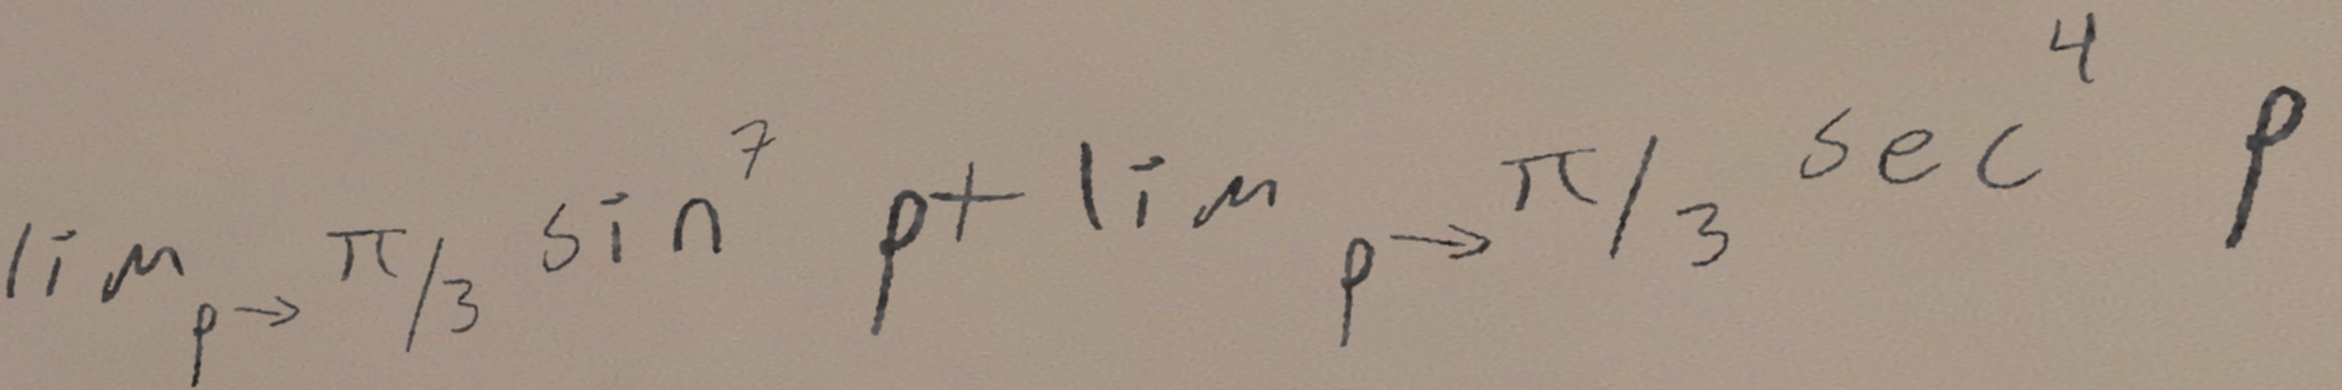 \lim_{p \to \pi/3} \sin^7 p + \lim_{p \to \pi/3} \sec^4 p